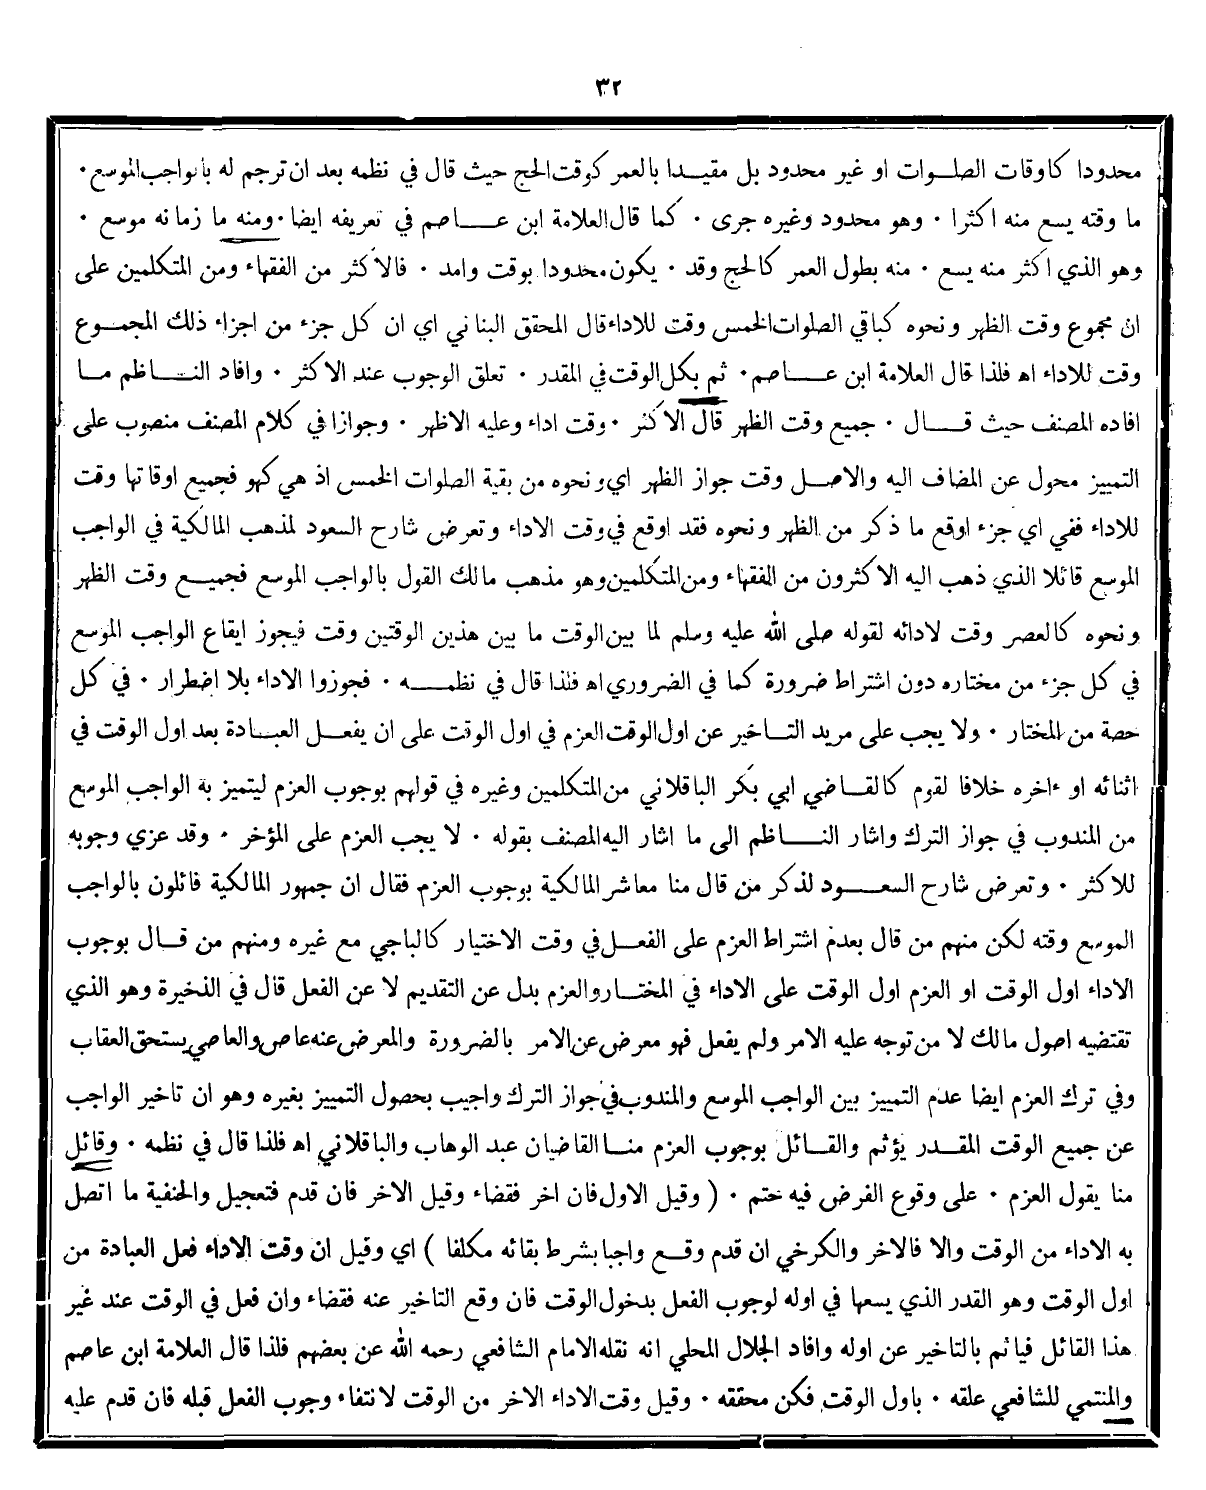 ٣٢
محدودا كاوقات الصلـوات او غير محدود بل مقيـدا بالعمر كوقت الحج حيث قال في نظمه بعد ان ترجم له بالواجب الموسع ·
ما وقته يسع منه اكثرا · وهو محدود وغيره جرى · كما قال العلامة ابن عـــاصم في تعريفه ايضا · ومنه ما زمانه موسع ·
وهو الذي اكثر منه يسع · منه بطول العمر كالحج وقد · يكون محدودا بوقت وامد · فالاكثر من الفقهاء ومن المتكلمين على
ان مجموع وقت الظهر ونحوه كباقي الصلوات الخمس وقت للاداء قال المحقق البناني اي ان كل جزء من اجزاء ذلك المجمـوع
وقت للاداء اه فلذا قال العلامة ابن عـــاصم · ثم بكل الوقت في المقدر · تعلق الوجوب عند الاكثر · وافاد النـــاظم مـا
افاده المصنف حيث قـــال · جميع وقت الظهر قال الاكثر · وقت اداء وعليه الاظهر · وجوازا في كلام المصنف منصوب على
التمييز محول عن المضاف اليه والاصـل وقت جواز الظهر اي ونحوه من بقية الصلوات الخمس اذ هي كهو فجميع اوقاتها وقت
للاداء ففي اي جزء اوقع ما ذكر من الظهر ونحوه فقد اوقع في وقت الاداء وتعرض شارح السعود لمذهب المالكية في الواجب
الموسع قائلا الذي ذهب اليه الاكثرون من الفقهاء ومن المتكلمين وهو مذهب مالك القول بالواجب الموسع فجميـع وقت الظهر
ونحوه كالعصر وقت لادائه لقوله صلى الله عليه وسلم لما بين الوقت ما بين هذين الوقتين وقت فيجوز ايقاع الواجب الموسع
في كل جزء من مختاره دون اشتراط ضرورة كما في الضروري اه فلذا قال في نظمـــه · فجوزوا الاداء بلا اضطرار · في كل
حصة من المختار · ولا يجب على مريد التـاخير عن اول الوقت العزم في اول الوقت على ان يفعـل العبـادة بعد اول الوقت في
اثنائه او ءاخره خلافا لقوم كالقـاضي ابي بكر الباقلاني من المتكلمين وغيره في قولهم بوجوب العزم ليتميز به الواجب الموسع
من المندوب في جواز الترك واشار النـــاظم الى ما اشار اليه المصنف بقوله · لا يجب العزم على المؤخر · وقد عزي وجوبه
للاكثر · وتعرض شارح السعـود لذكر من قال منا معاشر المالكية بوجوب العزم فقال ان جمهور المالكية قائلون بالواجب
الموسع وقته لكن منهم من قال بعدم اشتراط العزم على الفعـل في وقت الاختيار كالباجي مع غيره ومنهم من قـال بوجوب
الاداء اول الوقت او العزم اول الوقت على الاداء في المختـار والعزم بدل عن التقديم لا عن الفعل قال في الذخيرة وهو الذي
تقتضيه اصول مالك لا من توجه عليه الامر ولم يفعل فهو معرض عن الامر بالضرورة والمعرض عنه عاص والعاصي يستحق العقاب
وفي ترك العزم ايضا عدم التمييز بين الواجب الموسع والمندوب في جواز الترك واجيب بحصول التمييز بغيره وهو ان تاخير الواجب
عن جميع الوقت المقـدر يؤثم والقـائل بوجوب العزم منـا القاضيان عبد الوهاب والباقلاني اه فلذا قال في نظمه · وقائل
منا يقول العزم · على وقوع الفرض فيه حتم · ( وقيل الاول فان اخر فقضاء وقيل الاخر فان قدم فتعجيل والحنفية ما اتصل
به الاداء من الوقت والا فالاخر والكرخي ان قدم وقـع واجبا بشرط بقائه مكلفا ) اي وقيل ان وقت الاداء فعل العبادة من
اول الوقت وهو القدر الذي يسعها في اوله لوجوب الفعل بدخول الوقت فان وقع التاخير عنه فقضاء وان فعل في الوقت عند غير
هذا القائل فياثم بالتاخير عن اوله وافاد الجلال المحلي انه نقله الامام الشافعي رحمه الله عن بعضهم فلذا قال العلامة ابن عاصم
والمنتمي للشافعي علقه · باول الوقت فكن محققه · وقيل وقت الاداء الاخر من الوقت لانتفاء وجوب الفعل قبله فان قدم عليه